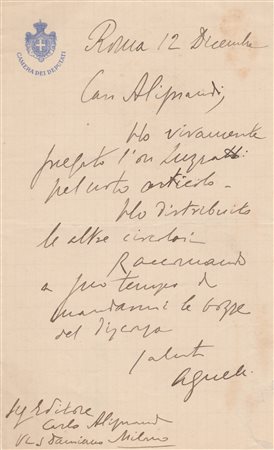 CAMERA DEI DEPUTATI
Roma 12 Dicembre
Caro Aliprandi,
Ho vivamente
pregato l'on Luzzatti
pel noto articolo -
Ho distribuito
le altre circolari
Raccomando
a suo tempo di
mandarmi le bozze
del discorso
saluti
Agnelli
Sig Editore
Carlo Aliprandi
Via S Damiano Milano